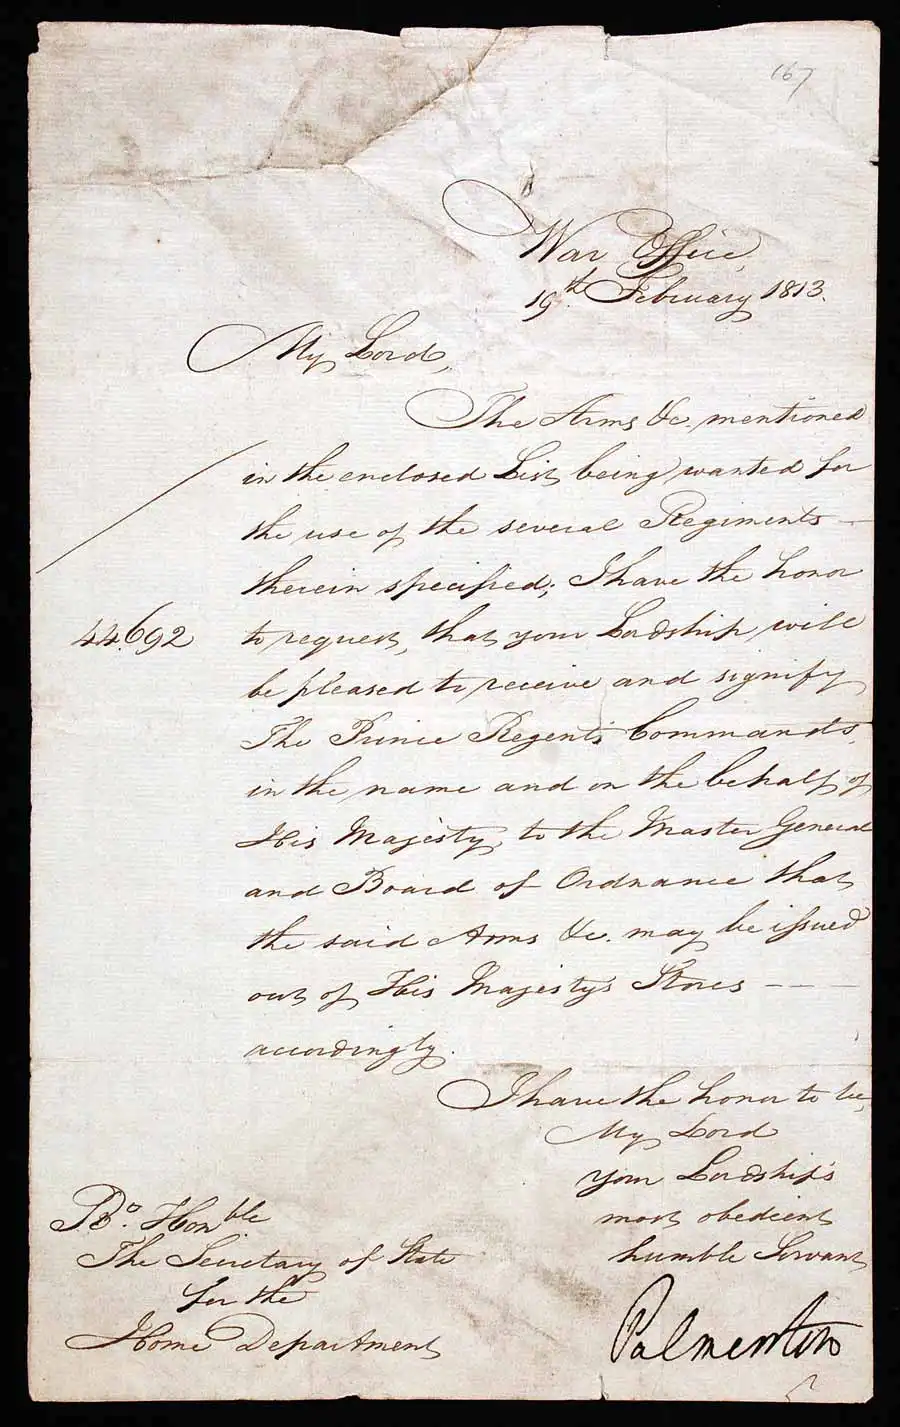 167
War Office,
19th February 1813.
My Lord,
The Arms &c. mentioned
in the enclosed List being wanted for
the use of the several Regiments —
therein specified; I have the honor
44.692
to request, that your Lordship will
be pleased to receive and signify
The Prince Regent's Commands,
in the name and on the behalf of
His Majesty, to the Master General
and Board of Ordnance that
the said Arms &c. may be issued
out of His Majesty's Stores - - -
accordingly.
I have the honor to be,
My Lord
Your Lordship's
most obedient
humble Servant
Palmerston
Honble
The Secretary of State
for the
Home Department